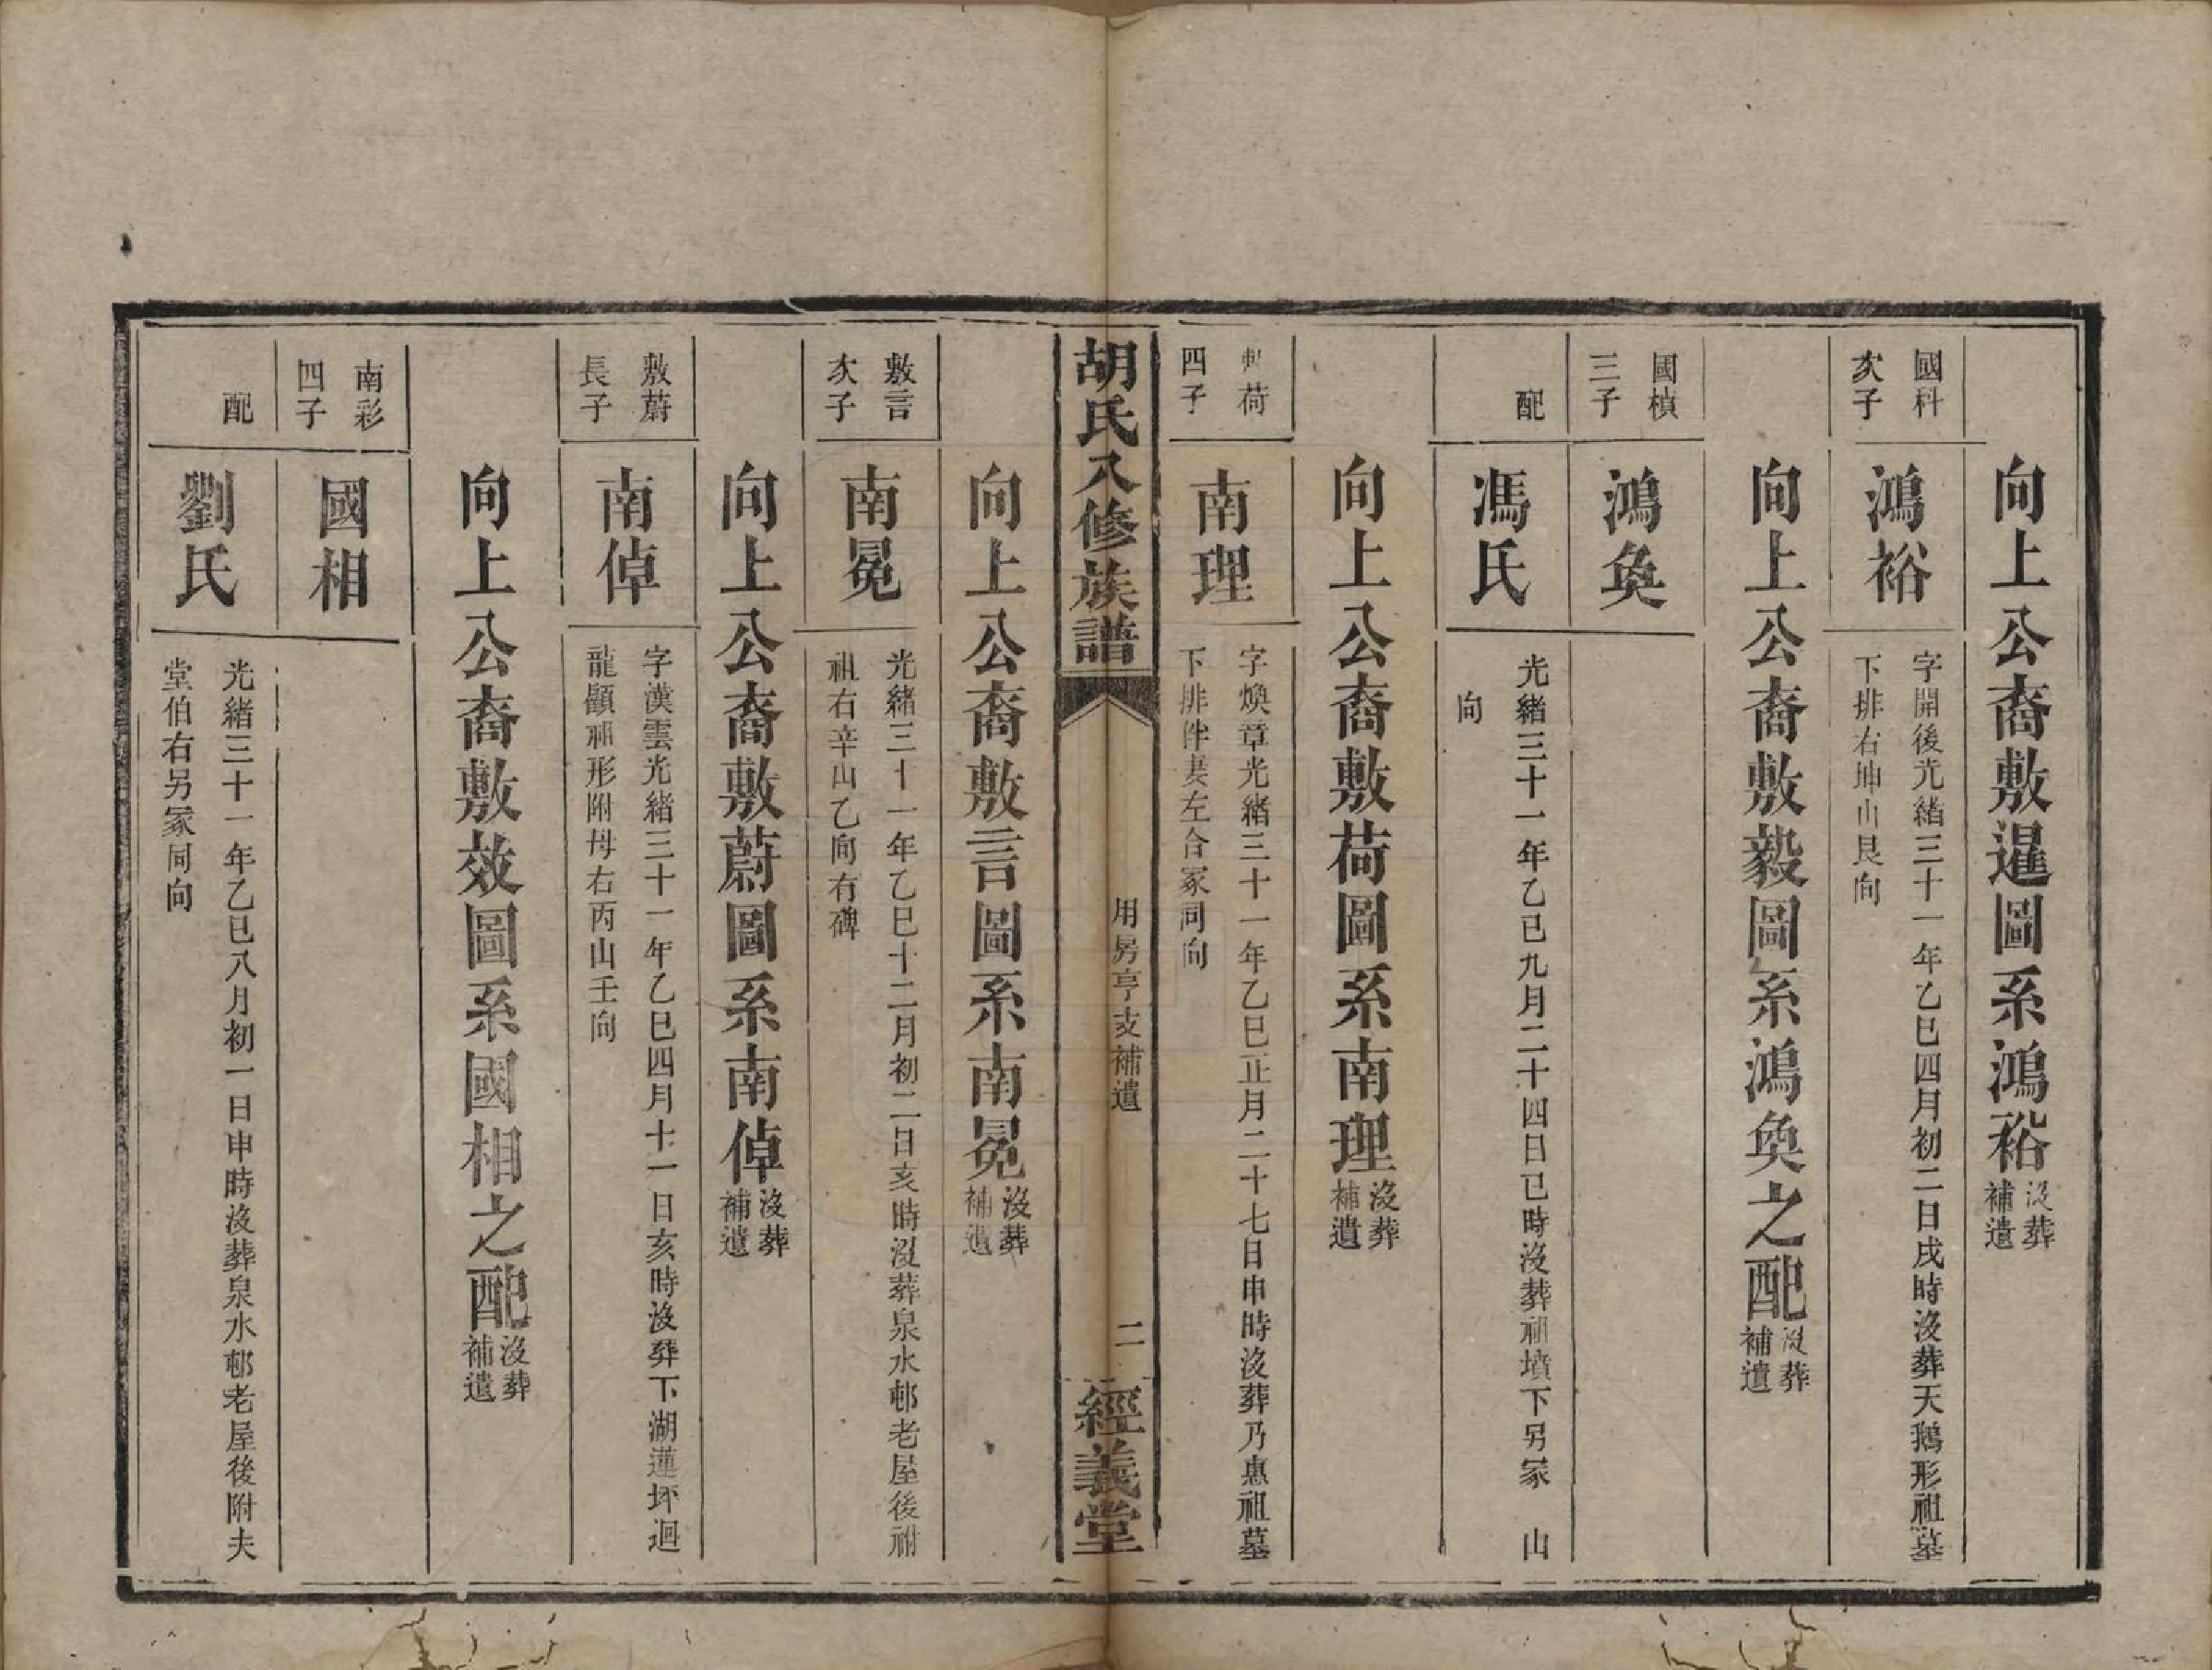 向上公裔敷暹圖系鴻裕沒葬補遺
國科次子
鴻裕
字開後光緒三十一年乙巳四月初二日戌時沒葬天鵝形祖墓
下排右坤山艮向
向上公裔敷毅圖系鴻奐之配沒葬補遺
國楨三子
鴻奐
配
馮氏
光緒三十一年乙巳九月二十四日巳時沒葬祖墳下另冢　山
向
向上公裔敷荷圖系南理沒葬補遺
荷四子
南理
字煥章光緒三十一年乙巳正月二十七日申時沒葬乃惠祖墓
下排伴妻左合冢同向
胡氏八修族譜
用房亨支補遺
二
經義堂
向上公裔敷言圖系南冕沒葬補遺
敷言次子
南冕
光緒三十一年乙巳十二月初二日亥時沒葬泉水邨老屋後祔
祖右辛山乙向有碑
向上公裔敷蔚圖系南倬沒葬補遺
敷蔚長子
南倬
字漢雲光緒三十一年乙巳四月十一日亥時沒葬下湖蓮坏迴
龍顧祖形附母右丙山壬向
向上公裔敷效圖系國相之配沒葬補遺
南彩四子
國相
配
劉氏
光緒三十一年乙巳八月初一日申時沒葬泉水邨老屋後附夫
堂伯右另冢同向